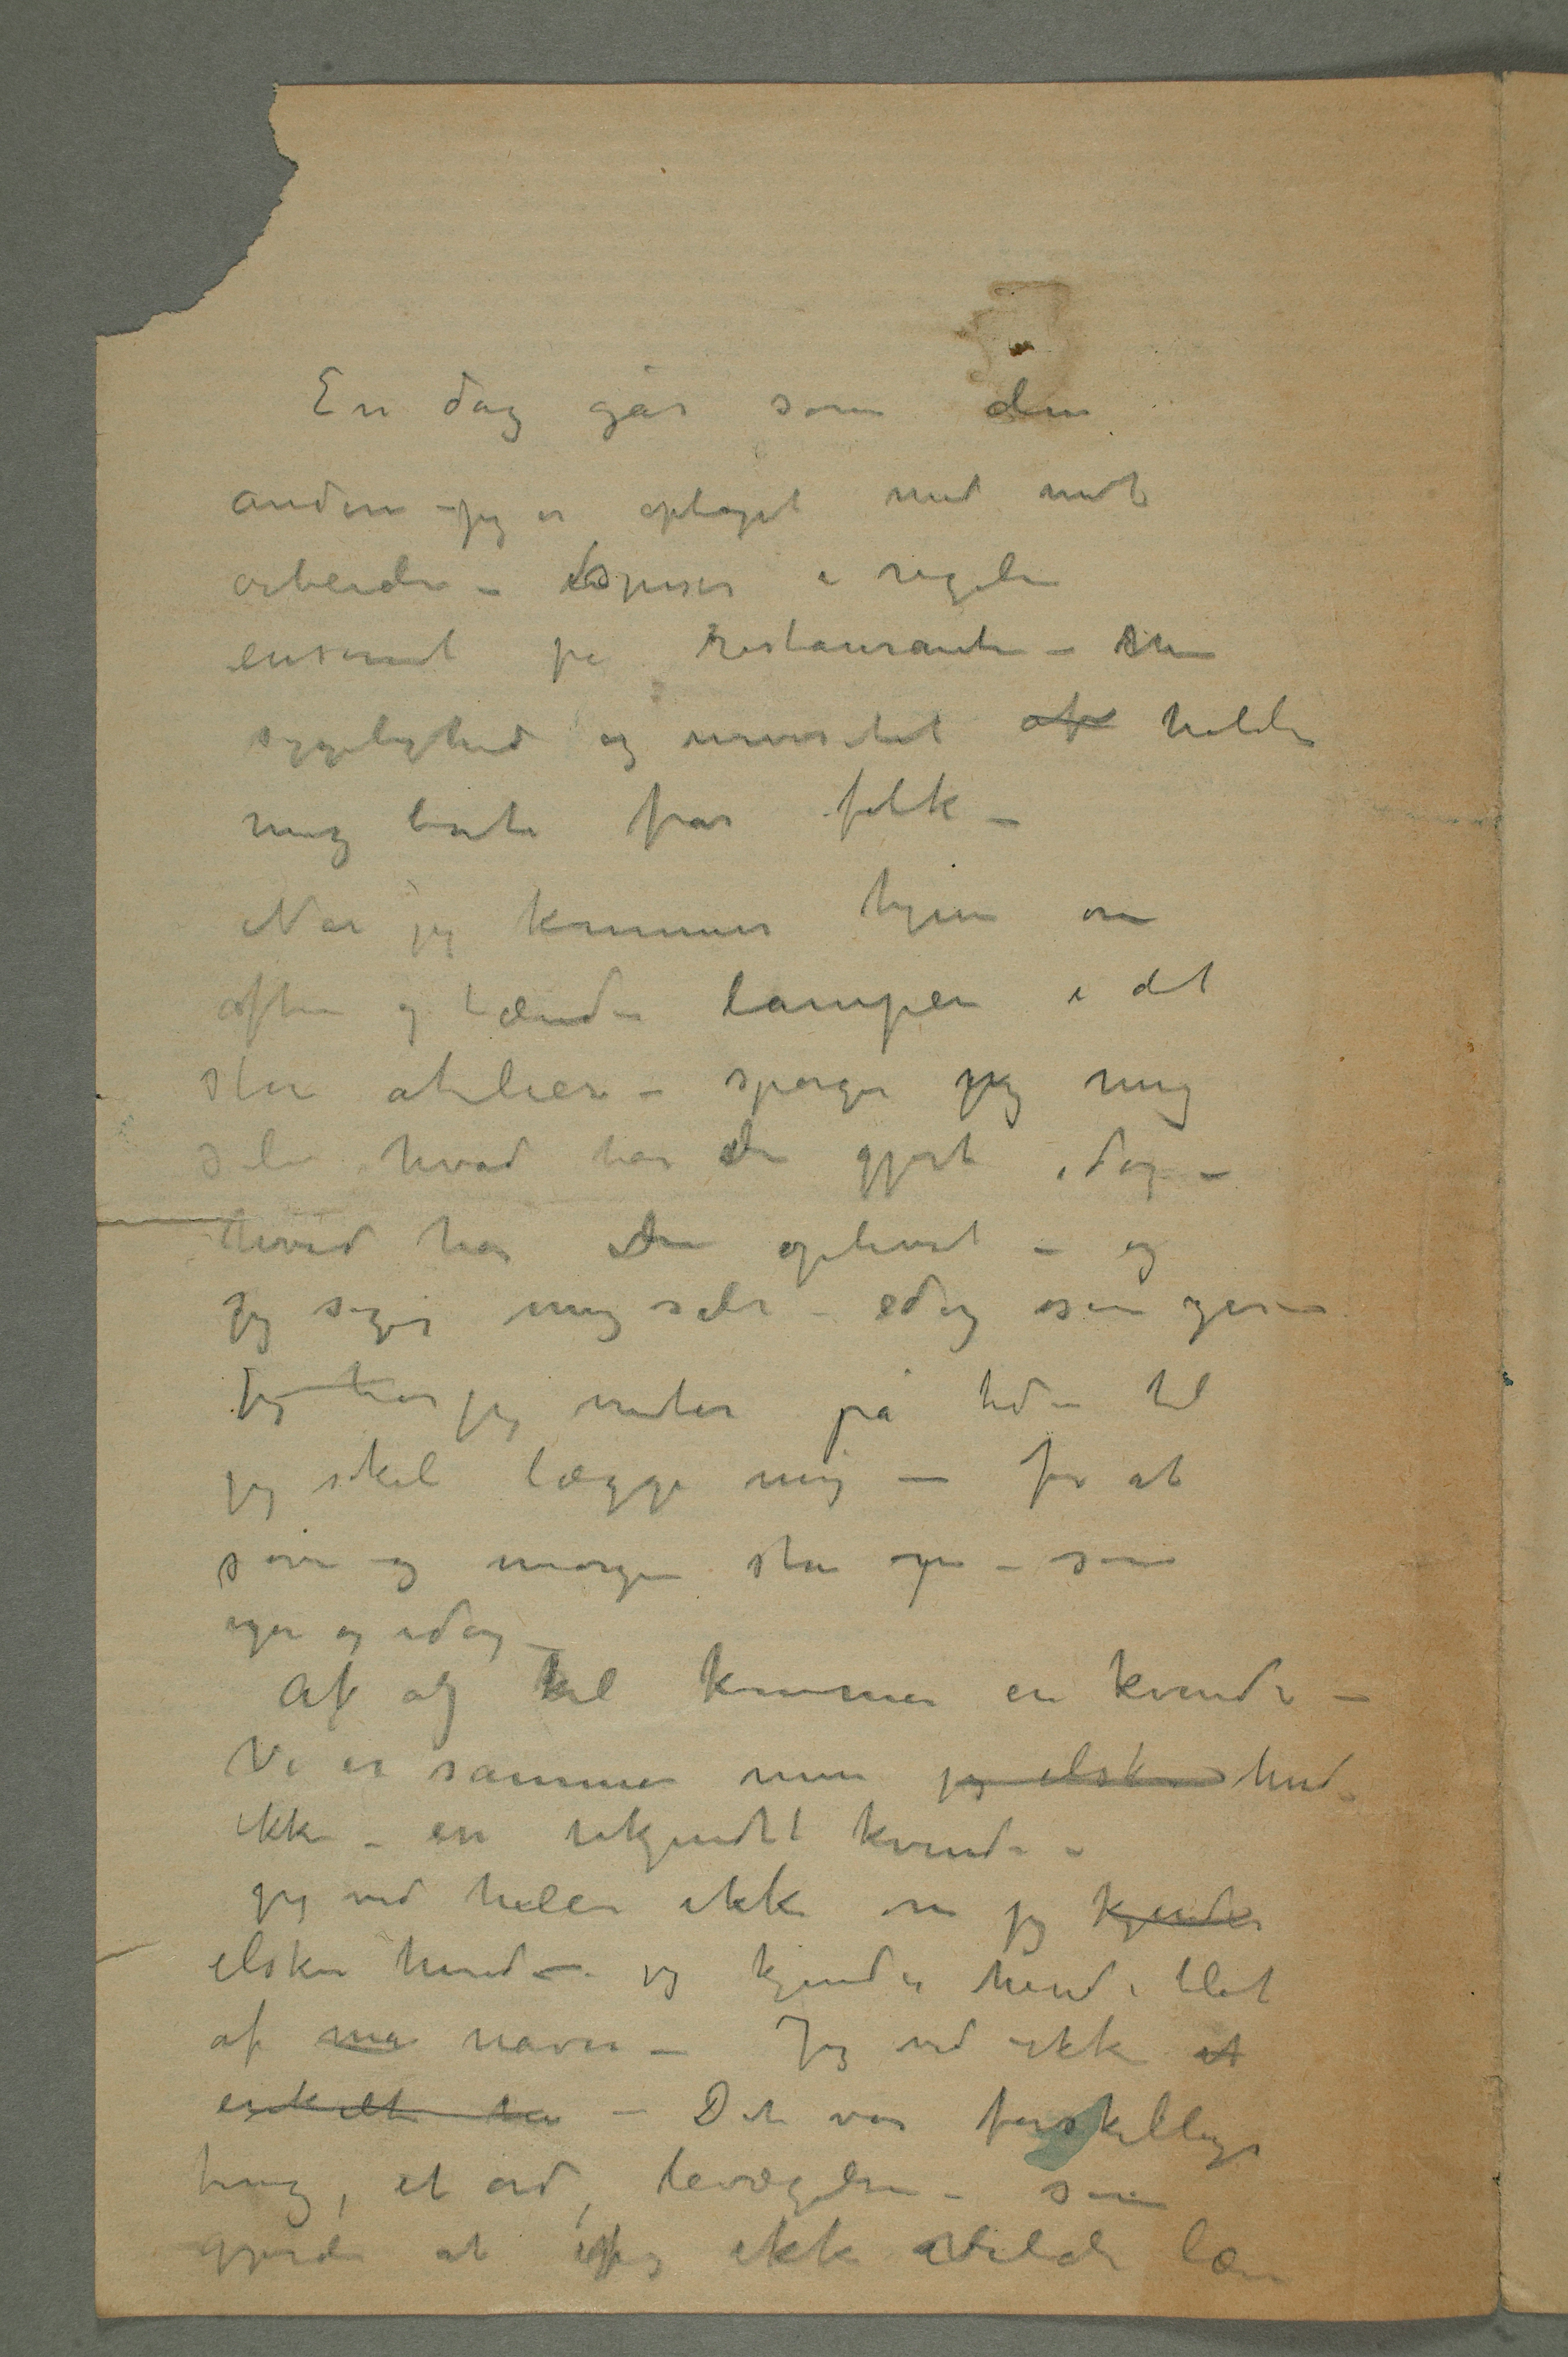 En dag går som den
anden – jeg er optaget med mit
arbeide – spiser i regelen
ensomt på restauranter – min
sygelighed og nervøsitet holder
mig borte fra folk –
Når jeg kommer hjem om
aften og tænder lampen i det
store atelier – spørger jeg mig
selv hvad har du gjort idag –
hvad har du oplevet – og
jeg siger mig selv – idag som igår
jeg har jeg venter på tiden til
jeg skal lægge mig – for at
sove og imorgen stå op – som
igår og idag –
Af og til kommer en kvinde –
Vi er sammen men jeg elsker hende
ikke – en ukjendt kvinde –
jeg ved heller ikke om jeg kjender
elsker hende – jeg kjender hende blot
af navn – Jeg ved ikke et
enkelt – Det var forskjellige
ting, et ord, bevægelse – som
gjorde at jeg ikke vilde lære